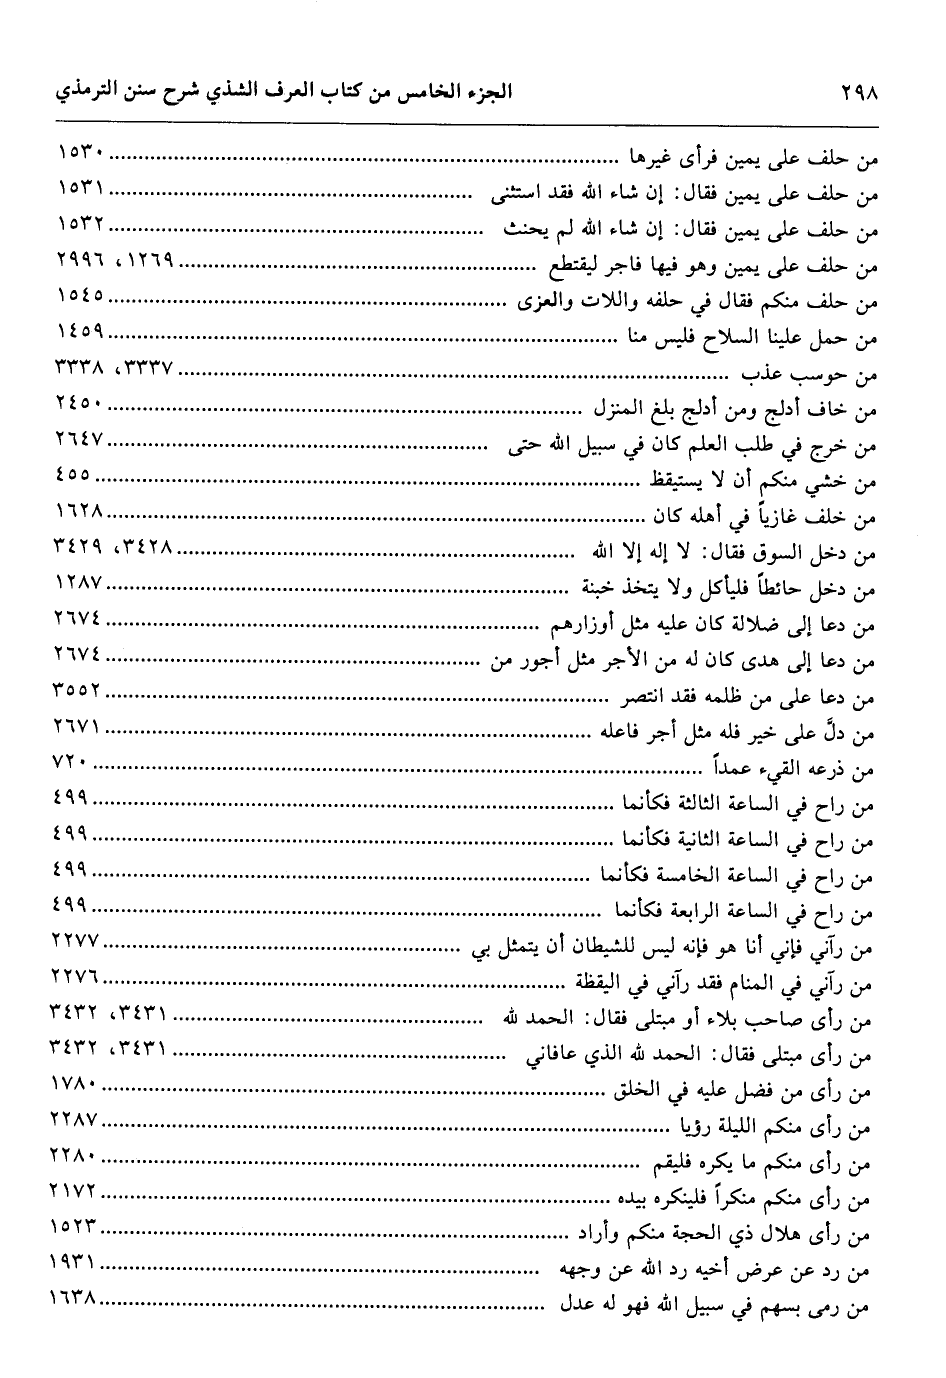 ٢٩٨ الجزء الخامس من كتاب العرف الشذي شرح سنن الترمذي
من حلف على يمين فرأى غيرها ........ ١٥٣٠
من حلف على يمين فقال: إن شاء الله فقد استثنى ........ ١٥٣١
من حلف على يمين فقال: إن شاء الله لم يحنث ........ ١٥٣٢
من حلف على يمين وهو فيها فاجر ليقتطع ........ ١٢٦٩، ٢٩٩٦
من حلف منكم فقال في حلفه واللات والعزى ........ ١٥٤٥
من حمل علينا السلاح فليس منا ........ ١٤٥٩
من حوسب عذب ........ ٣٣٣٧، ٣٣٣٨
من خاف أدلج ومن أدلج بلغ المنزل ........ ٢٤٥٠
من خرج في طلب العلم كان في سبيل الله حتى ........ ٢٦٤٧
من خشي منكم أن لا يستيقظ ........ ٤٥٥
من خلف غازياً في أهله كان ........ ١٦٢٨
من دخل السوق فقال: لا إله إلا الله ........ ٣٤٢٨، ٣٤٢٩
من دخل حائطاً فليأكل ولا يتخذ خبنة ........ ١٢٨٧
من دعا إلى ضلالة كان عليه مثل أوزارهم ........ ٢٦٧٤
من دعا إلى هدى كان له من الأجر مثل أجور من ........ ٢٦٧٤
من دعا على من ظلمه فقد انتصر ........ ٣٥٥٢
من دلَّ على خير فله مثل أجر فاعله ........ ٢٦٧١
من ذرعه القيء عمداً ........ ٧٢٠
من راح في الساعة الثالثة فكأنما ........ ٤٩٩
من راح في الساعة الثانية فكأنما ........ ٤٩٩
من راح في الساعة الخامسة فكأنما ........ ٤٩٩
من راح في الساعة الرابعة فكأنما ........ ٤٩٩
من رآني فإني أنا هو فإنه ليس للشيطان أن يتمثل بي ........ ٢٢٧٧
من رآني في المنام فقد رآني في اليقظة ........ ٢٢٧٦
من رأى صاحب بلاء أو مبتلى فقال: الحمد لله ........ ٣٤٣١، ٣٤٣٢
من رأى مبتلى فقال: الحمد لله الذي عافاني ........ ٣٤٣١، ٣٤٣٢
من رأى من فضل عليه في الخلق ........ ١٧٨٠
من رأى منكم الليلة رؤيا ........ ٢٢٨٧
من رأى منكم ما يكره فليقم ........ ٢٢٨٠
من رأى منكم منكراً فلينكره بيده ........ ٢١٧٢
من رأى هلال ذي الحجة منكم وأراد ........ ١٥٢٣
من رد عن عرض أخيه رد الله عن وجهه ........ ١٩٣١
من رمى بسهم في سبيل الله فهو له عدل ........ ١٦٣٨